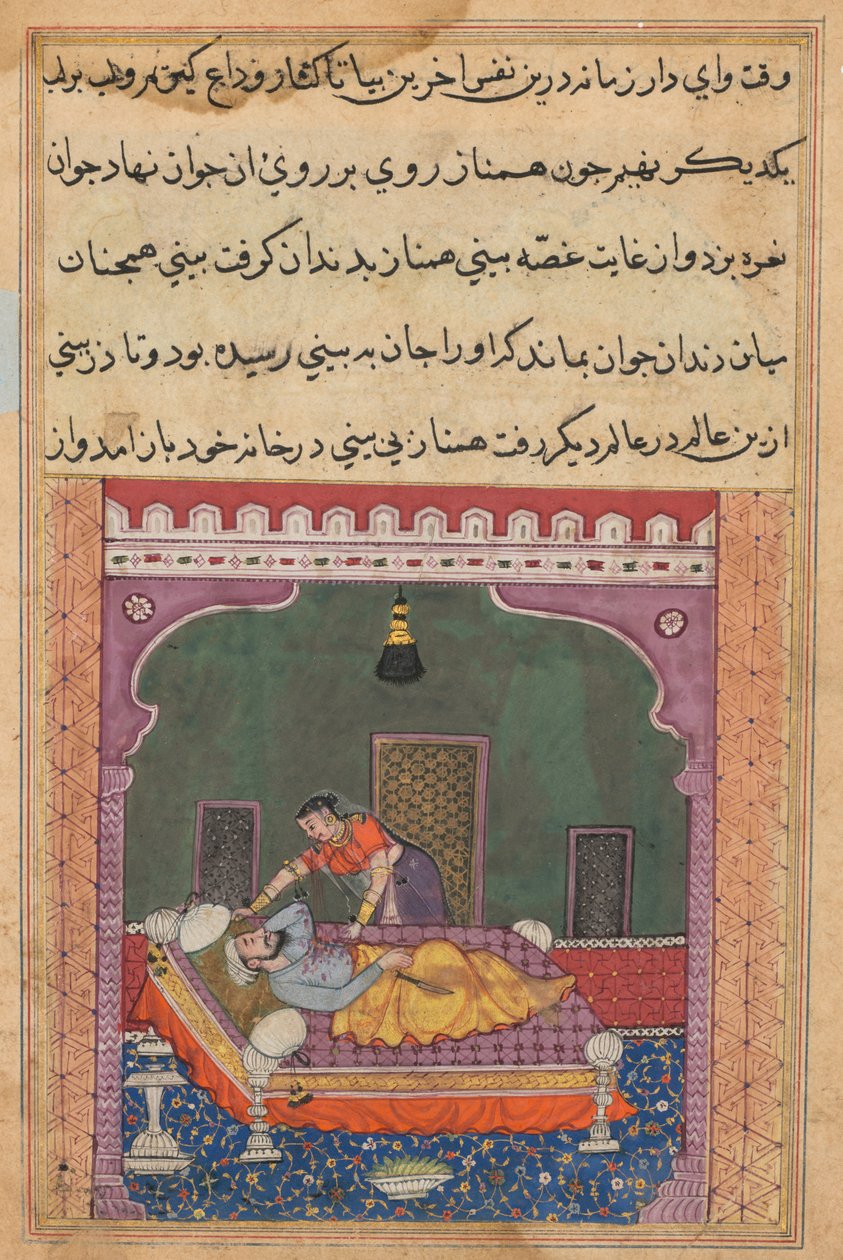 وقت واي دار زمانه درین نفس اخرین بیا تا کنار و وداع کنیم و لب بر لب
یکدیکر نهیم جون همناز روي بر روئ ان جوان نهاد جوان
نعره بزد و از غایت غصّه بیني همناز بدندان کرفت بیني همجنان
میان دندان جوان بماند که او را جان به بیني رسیده بود و تا در بیني
ازین عالم در عالم دیکر رفت همناز بي بیني در خانه خود باز امد و از